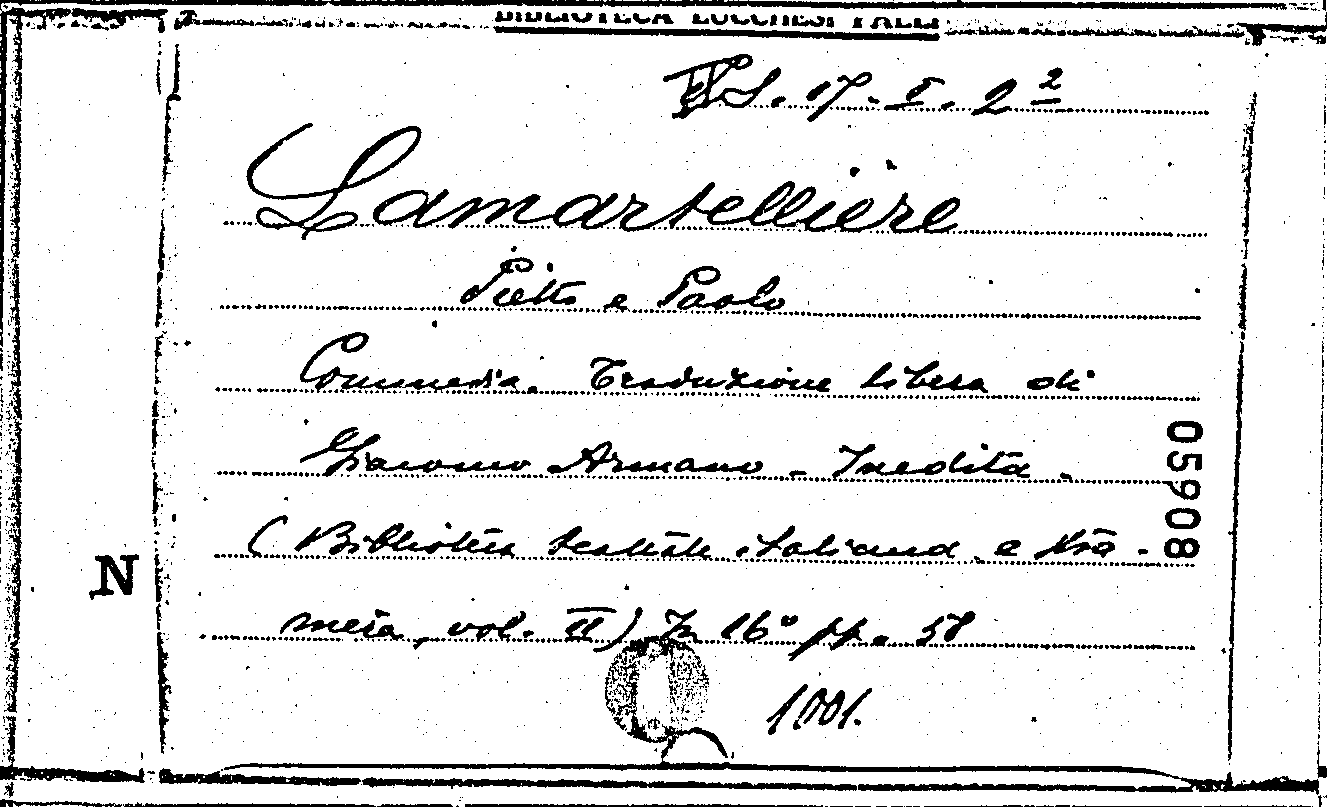 BIBLIOTECA LUCCHESI PALLI
S. 17. I. 2 2
Lamartellière
Pietro e Paolo
Commedia. Traduzione libera di
Giacomo Armano - Inedita.
(Biblioteca teatrale italiana e stra-
niera, vol. II) In 16° pp. 58
1001.
05908
N